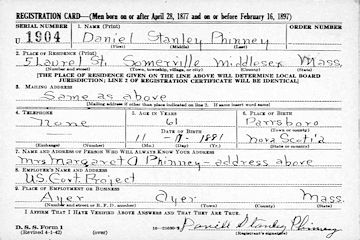 REGISTRATION CARD—(Men born on or after April 28, 1877 and on or before February 16, 1897)
SERIAL NUMBER 1. NAME (Print) ORDER NUMBER
U 1904 Daniel Stanley Phinney
(First) (Middle) (Last)
2. PLACE OF RESIDENCE (Print)
5 Laurel St. Somerville Middlesex Mass.
(Number and street) (Town, township, village, or city) (County) (State)
[THE PLACE OF RESIDENCE GIVEN ON THE LINE ABOVE WILL DETERMINE LOCAL BOARD
JURISDICTION; LINE 2 OF REGISTRATION CERTIFICATE WILL BE IDENTICAL]
3. MAILING ADDRESS
Same as above
[Mailing address if other than place indicated on line 2. If same insert word same]
4. TELEPHONE 5. AGE IN YEARS 6. PLACE OF BIRTH
None 61 Parrsboro
DATE OF BIRTH (Town or county)
11-17-1881 Nova Scotia
(Exchange) (Number) (Mo.) (Day) (Yr.) (State or country)
7. NAME AND ADDRESS OF PERSON WHO WILL ALWAYS KNOW YOUR ADDRESS
Mrs Margaret A Phinney-address above
8. EMPLOYER'S NAME AND ADDRESS
US. Govt. Project
9. PLACE OF EMPLOYMENT OR BUSINESS
Ayer Ayer Mass.
(Number and street or R. F. D. number) (Town) (County) (State)
I AFFIRM THAT I HAVE VERIFIED ABOVE ANSWERS AND THAT THEY ARE TRUE.
D. S. S. Form 1 Daniel Stanley Phinney
(Revised 4-1-42) (over) (Registrant's signature)